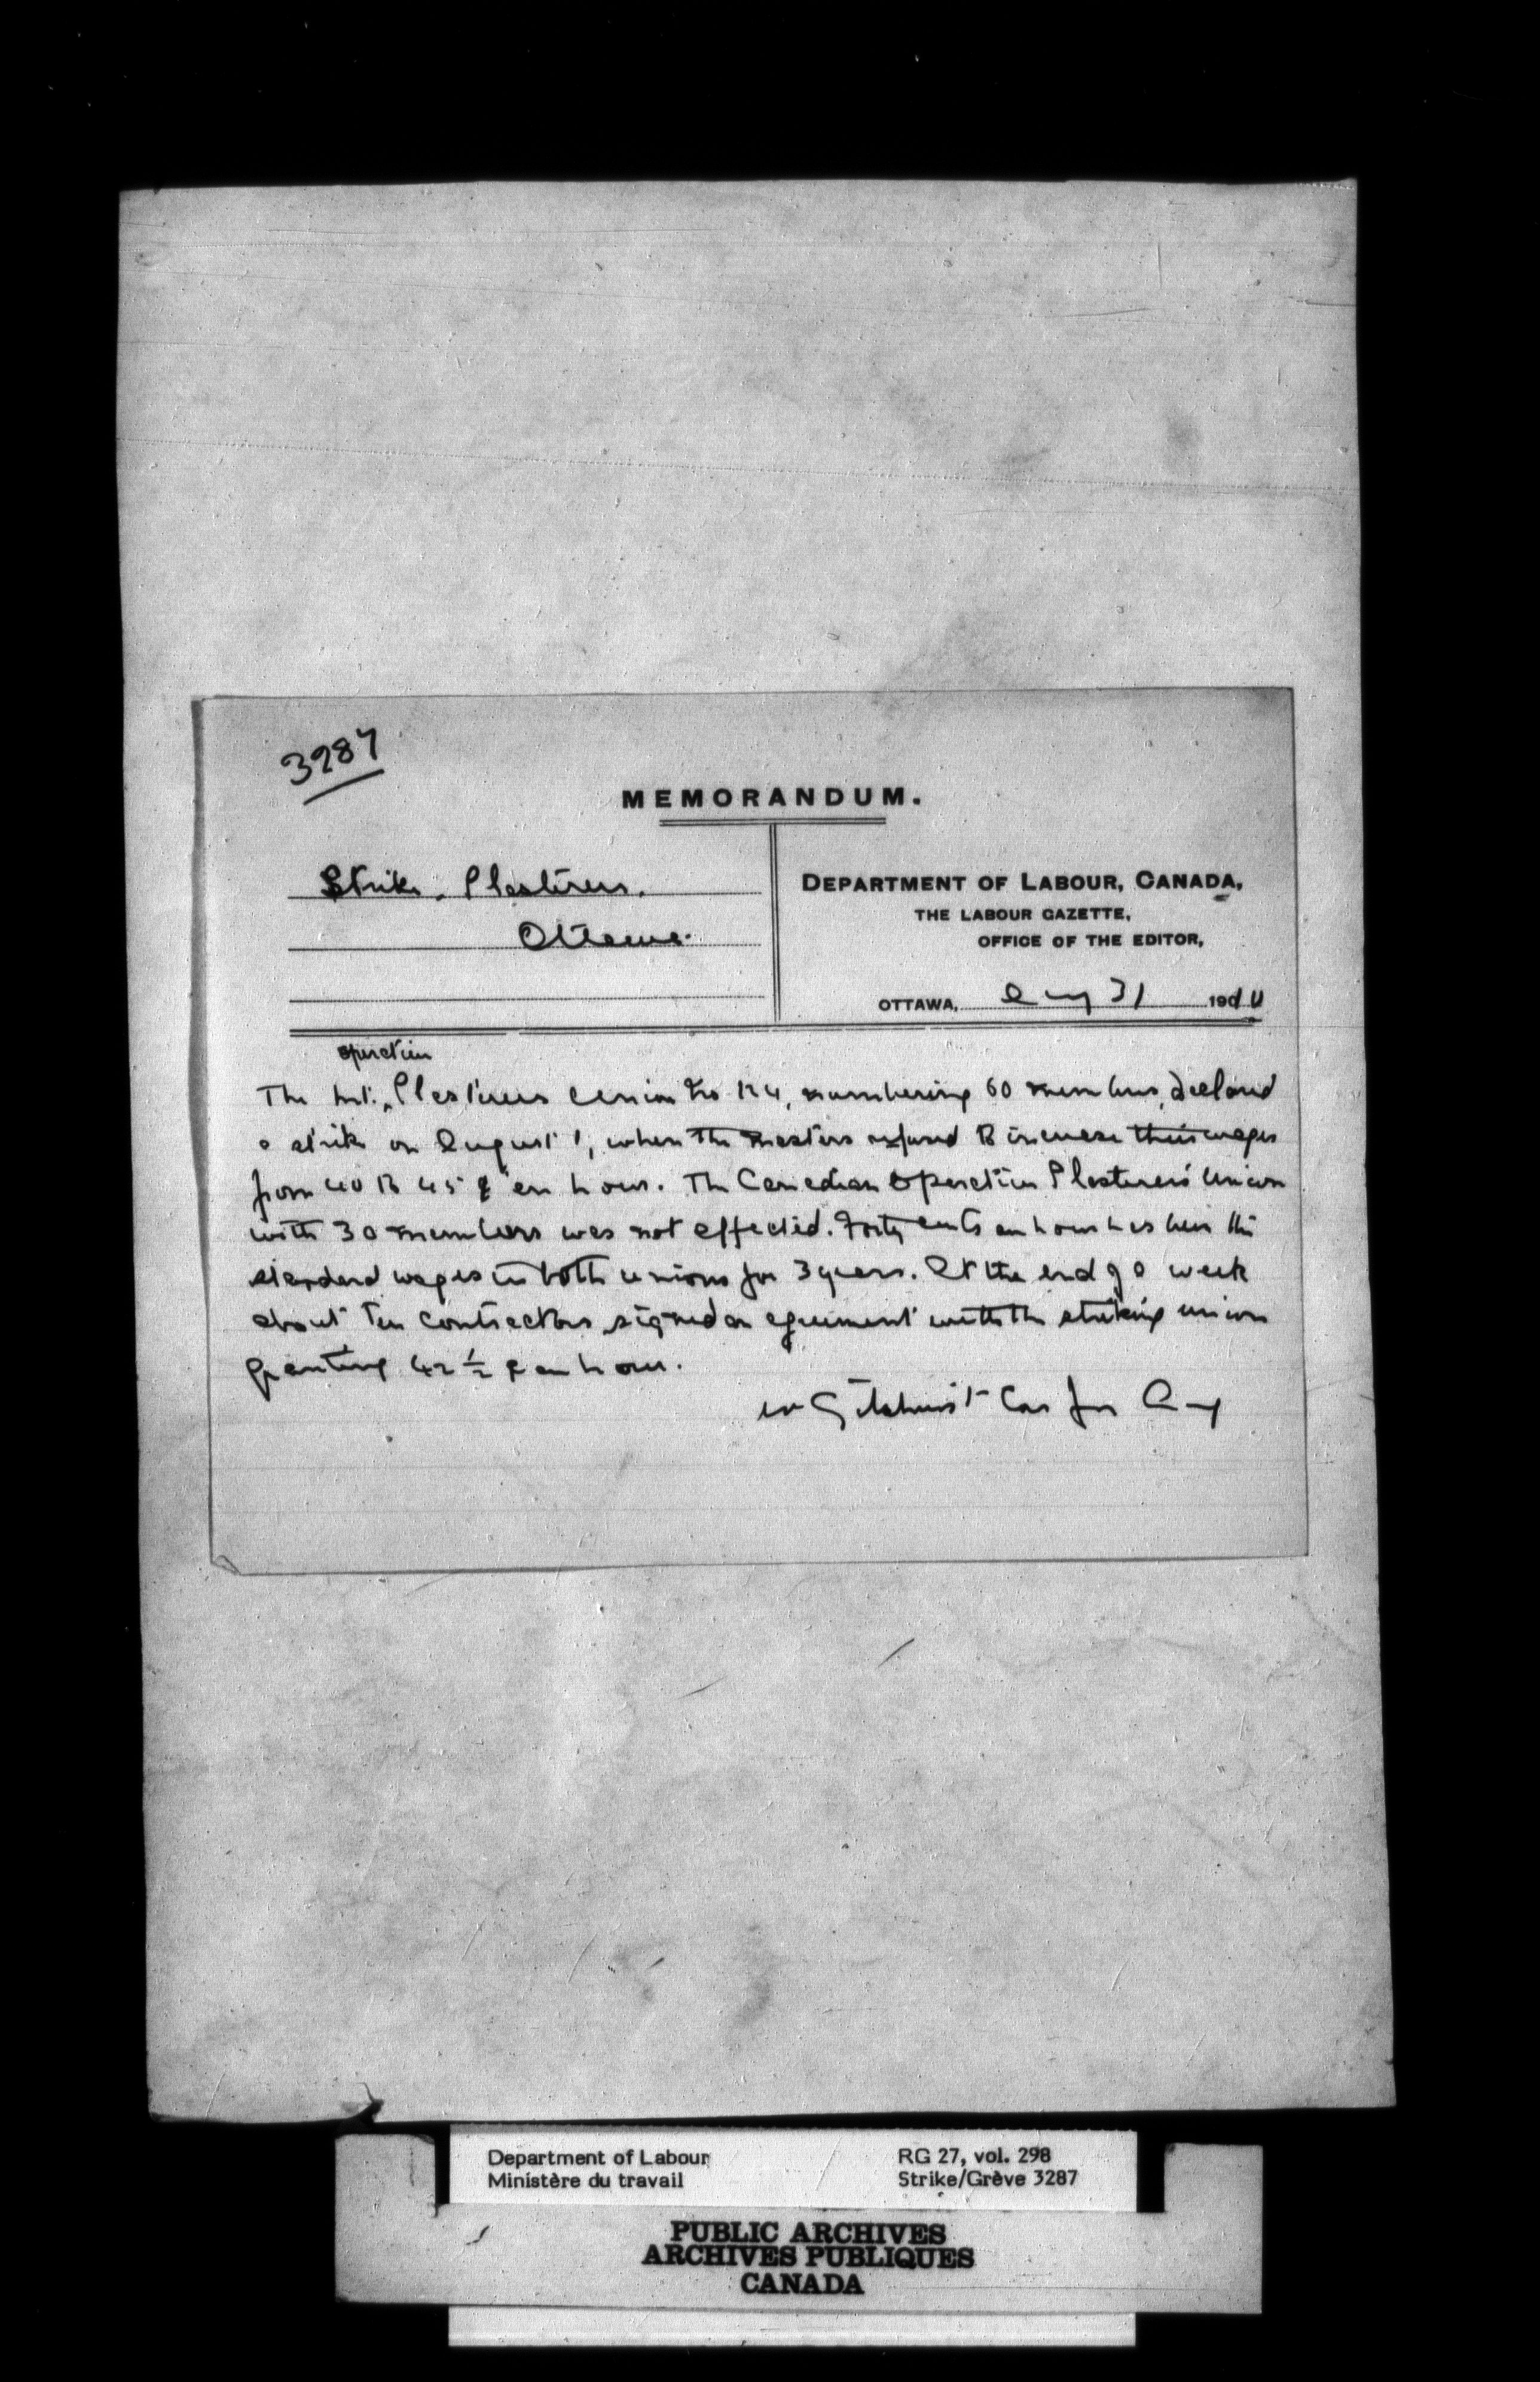 3287
MEMORANDUM.
Strike, Plasterers.
Ottawa.
DEPARTMENT OF LABOUR, CANADA,
THE LABOUR GAZETTE,
OFFICE OF THE EDITOR,
OTTAWA, Aug 31 1910
operative
The Int. Plasterers Union No. 124, numbering 60 members, declared
a strike on August 1, when the masters refused to increase their wages
from 40 to 45 ¢ an hour. The Canadian Operative Plasterers' Union
with 30 members was not affected. Forty cents an hour has been the
standard wages in both unions for 3 years. At the end of a week
about ten contractors signed an agreement with the striking union
granting 42 1/2 ¢ an hour.
W Gilchrist Cor for Aug
Department of Labour
Ministère du travail
RG 27, vol. 298
Strike/Grève 3287
PUBLIC ARCHIVES
ARCHIVES PUBLIQUES
CANADA